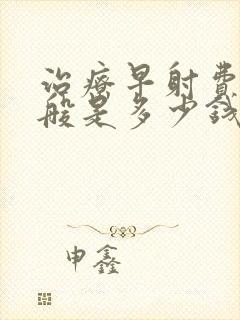 治疗早射费
般是多少钱
申鑫